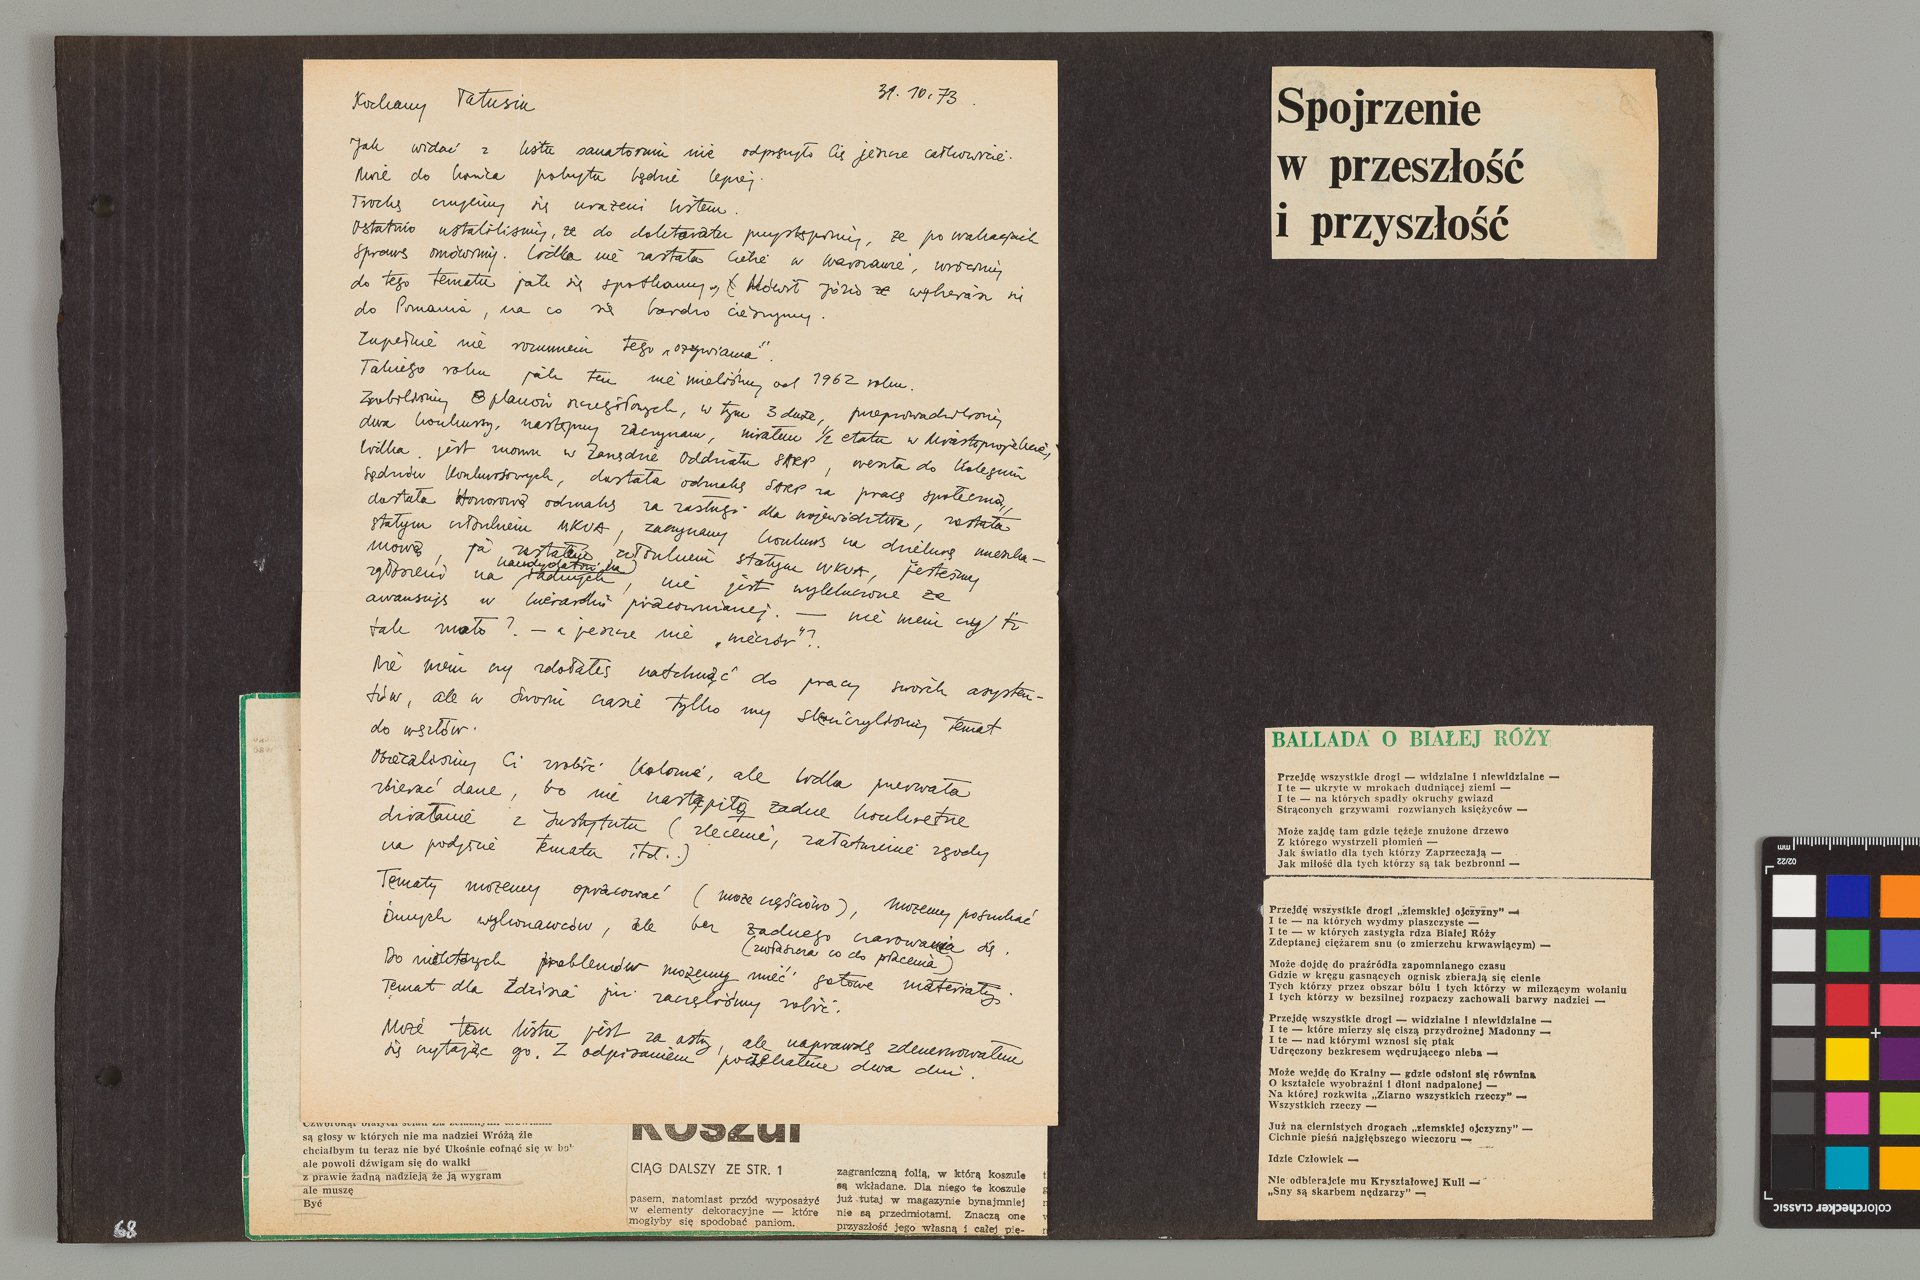 Kochany Tatusiu
31.10.73.
Jak widać z listu sanatorium nie odprężyło Cię jeszcze całkowicie.
Może do końca pobytu będzie lepiej.
Trochę czujemy się urażeni listem.
Ostatnio ustaliliśmy, że do doktoratu przystępimy, że po wakacjach
sprawę omówimy. Lodka nie zastała Ciebie w Warszawie, wrócimy
do tego tematu jak się spotkamy, (Mówił Józio że wybierasz się
do Poznania, na co się bardzo cieszymy.
Zupełnie nie rozumiem tego „ożywiania”.
Takiego roku jak ten nie mieliśmy od 1962 roku.
Zrobiliśmy 8 planów szczegółowych, w tym 3 duże, przeprowadziliśmy
dwa konkursy, następny zaczynam, miałem 1/2 etatu w Miastoprojekcie,
Lodka jest znowu w Zarządzie Oddziału SARP, weszła do Kolegium
sędziów konkursowych, dostała odznakę SARP za pracę społeczną,
dostała Honorową odznakę za zasługi dla województwa, została
stałym członkiem WKUA, zaczynamy konkurs na dzielnicę mieszka-
niową, ja zostałem członkiem stałym WKUA, jesteśmy
zgłoszeni na kandydatów na radnych, nie jest wykluczone że
awansuję w hierarchii pracownianej. — nie wiem czy to
tak mało? — a jeszcze nie „wieczór”?.
Nie wiem czy zdołałeś natchnąć do pracy swoich asysten-
tów, ale w swoim czasie tylko my skończyliśmy temat
do węzłów.
Obiecaliśmy Ci zrobić Kolonię, ale Lodka przerwała
zbierać dane, bo nie nastąpiły żadne konkretne
działanie z Instytutu (zlecenie, załatwienie zgody
na podjęcie tematu itd..)
Tematy możemy opracować (może częściowo), możemy poszukać
innych wykonawców, ale bez żadnego czarowania się.
(zwłaszcza co do płacenia)
Do niektórych problemów możemy mieć gotowe materiały.
Temat dla Zdzisia już zaczęliśmy robić.
Może ton listu jest za ostry, ale naprawdę zdenerwowałem
się czytając go. Z odpisaniem poczekałem dwa dni.
są głosy w których nie ma nadziei Wróżą źle
chciałbym tu teraz nie być Ukośnie cofnąć się w
ale powoli dźwigam się do walki
z prawie żadną nadzieją że ją wygram
ale muszę
Być
koszul
CIĄG DALSZY ZE STR. 1
pasem, natomiast przód wyposażyć
w elementy dekoracyjne — które
mogłyby się spodobać paniom.
zagraniczną folią, w którą koszule
są wkładane. Dla niego te koszule
już tutaj w magazynie bynajmniej
nie są przedmiotami. Znaczą one
przyszłość jego własną i całej pię-
68
Spojrzenie
w przeszłość
i przyszłość
BALLADA O BIAŁEJ RÓŻY
Przejdę wszystkie drogi — widzialne i niewidzialne —
I te — ukryte w mrokach dudniącej ziemi —
I te — na których spadły okruchy gwiazd
Strąconych grzywami rozwianych księżyców —
Może zajdę tam gdzie tężeje znużone drzewo
Z którego wystrzeli płomień —
Jak światło dla tych którzy Zaprzeczają —
Jak miłość dla tych którzy są tak bezbronni —
Przejdę wszystkie drogi „ziemskiej ojczyzny” —
I te — na których wydmy piaszczyste —
I te — w których zastygła rdza Białej Róży
Zdeptanej ciężarem snu (o zmierzchu krwawiącym) —
Może dojdę do praźródła zapomnianego czasu
Gdzie w kręgu gasnących ognisk zbierają się cienie
Tych którzy przez obszar bólu i tych którzy w milczącym wołaniu
I tych którzy w bezsilnej rozpaczy zachowali barwy nadziei —
Przejdę wszystkie drogi — widzialne i niewidzialne —
I te — które mierzy się ciszą przydrożnej Madonny —
I te — nad którymi wznosi się ptak
Udręczony bezkresem wędrującego nieba —
Może wejdę do Krainy — gdzie odsłoni się równina
O kształcie wyobraźni i dłoni nadpalonej —
Na której rozkwita „Ziarno wszystkich rzeczy” —
Wszystkich rzeczy —
Już na ciernistych drogach „ziemskiej ojczyzny” —
Cichnie pieśń najgłębszego wieczoru —
Idzie Człowiek —
Nie odbierajcie mu Kryształowej Kuli —
„Sny są skarbem nędzarzy” —
mm
02/22
colorchecker CLASSIC